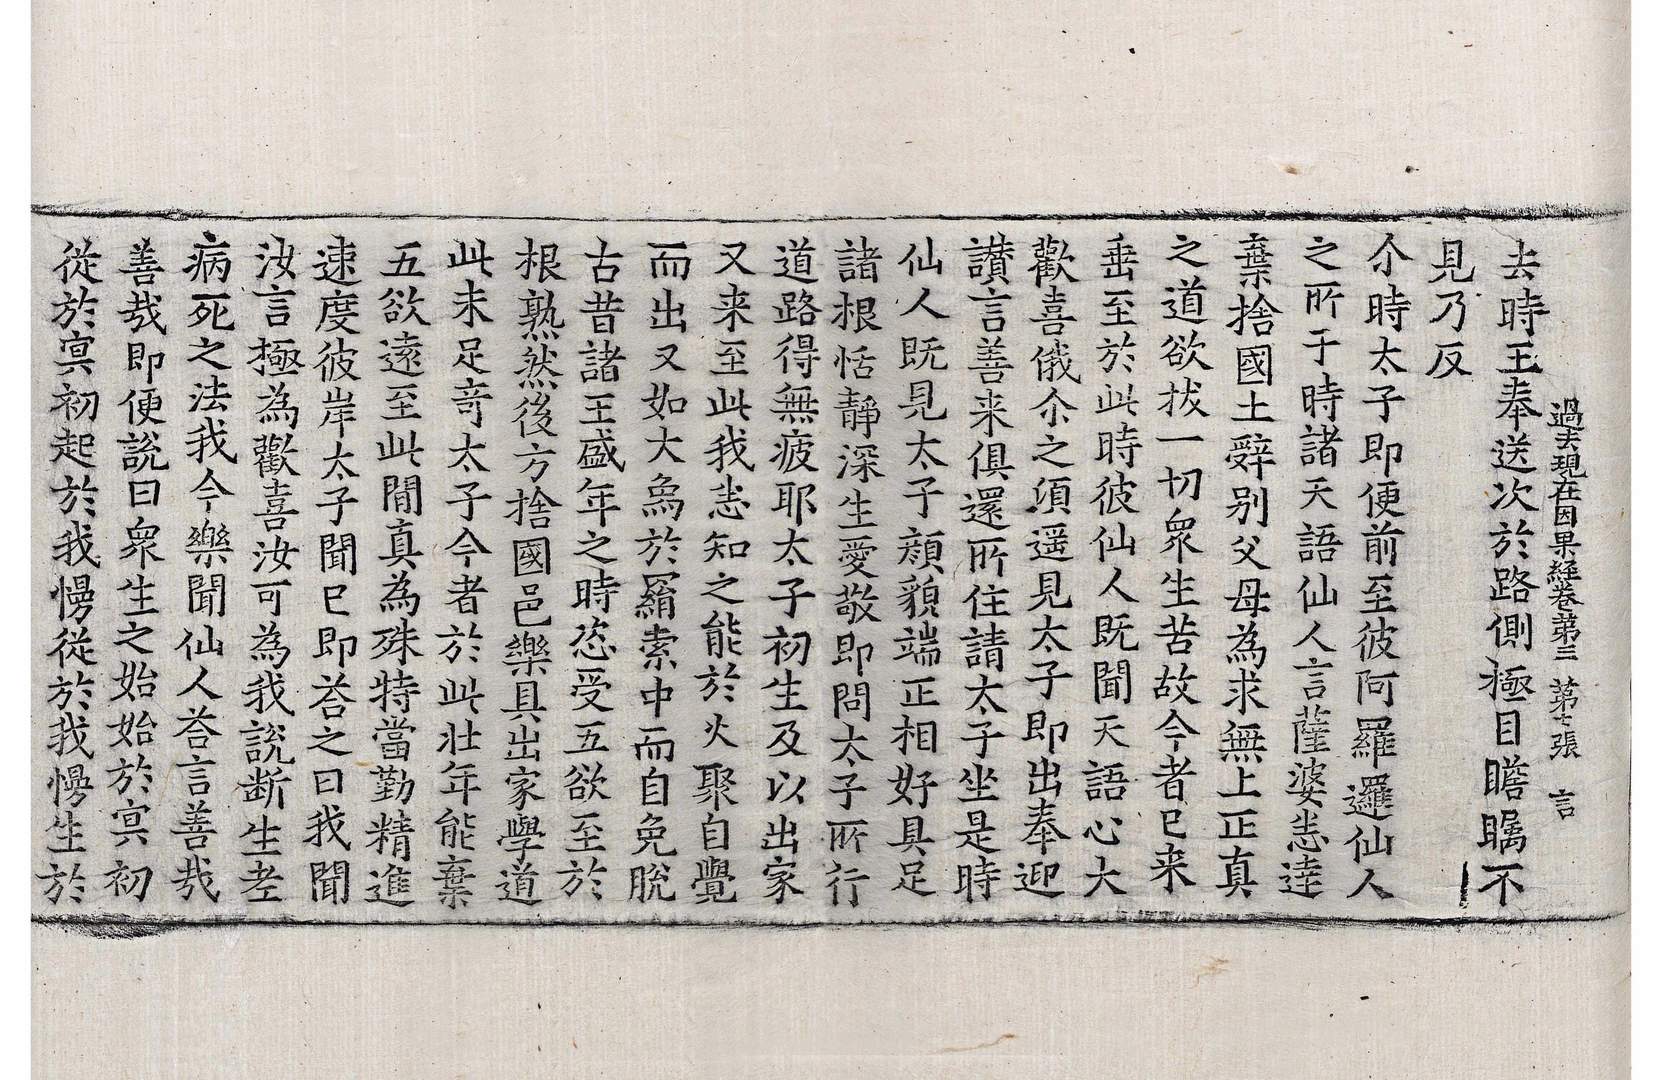 過去現在因果経卷第三 第七張 言
去時王奉送次於路側極目瞻矚不
見乃反
尒時太子即便前至彼阿羅邏仙人
之所于時諸天語仙人言薩婆悉達
棄捨國土辭别父母為求無上正真
之道欲拔一切衆生苦故今者已来
垂至於此時彼仙人既聞天語心大
歡喜俄尒之湏遥見太子即出奉迎
讃言善来俱還所住請太子坐是時
仙人既見太子顔貌端正相好具足
諸根恬靜深生愛敬即問太子所行
道路得無疲耶太子初生及以出家
又来至此我悉知之能於火聚自覺
而出又如大象於羂索中而自免脫
古昔諸王盛年之時恣受五欲至於
根熟然後方捨國邑樂具出家學道
此未足竒太子今者於此壮年能棄
五欲遠至此間真為殊特當勤精進
速度彼岸太子聞已即荅之曰我聞
汝言極為歡喜汝可為我說断生老
病死之法我今樂聞仙人荅言善哉
善哉即便說曰衆生之始始於冥初
從於冥初起於我慢從於我慢生於